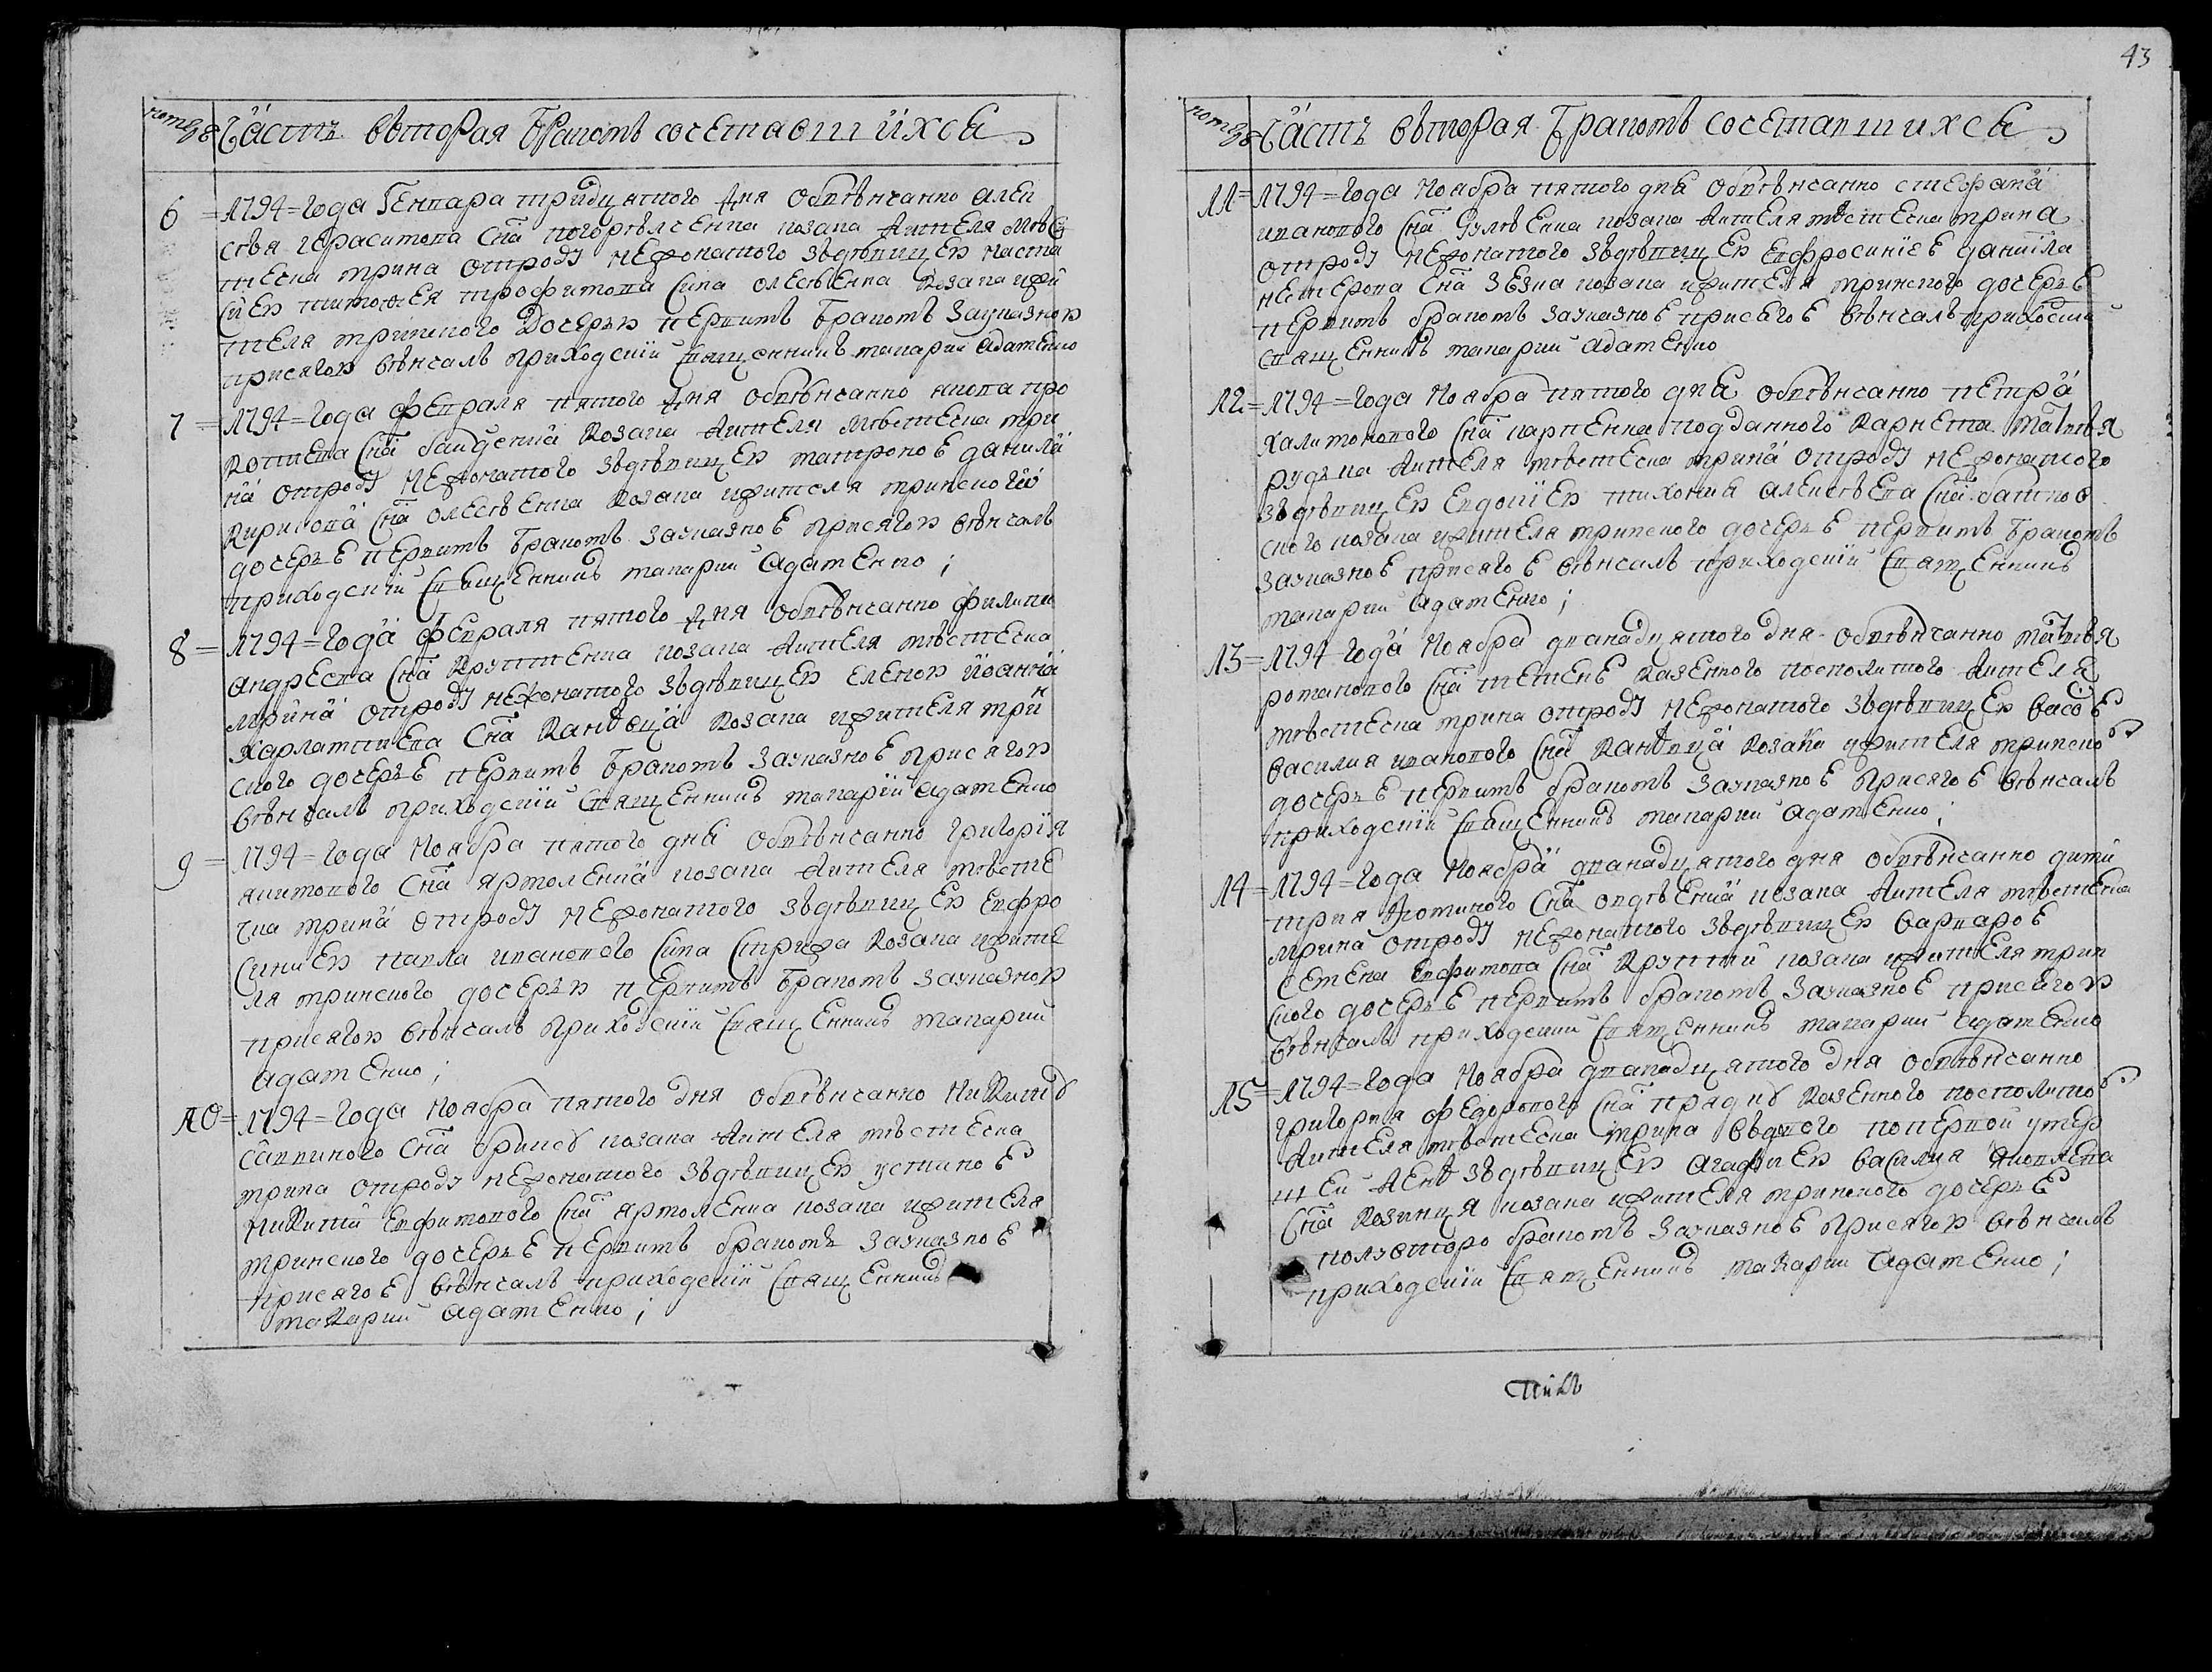 43
номеръ Часть вторая бракомъ сочетавшихся
6 = 1794 = года Генвара тридцятого дня обвѣнчанно Алек
сѣя Герасимова сна погорѣлченка козака жителя мѣс
течка ирина отроду неженатого зъ дѣвицею Наста
сіею Тимофея Трофимова сина Олесѣенка козака жи
теля иринского дочерью первимъ бракомъ за указною
присягою вѣнчалъ приходскій священникъ Макарій Адаменко
7 = 1794 = года февраля пятого дня обвѣнчанно Якова Про
кошева сна козака жителя мѣстечка ири
на отроду неженатого зъ дѣвицею Матроною Данила
Кирилова сна Олесѣенка козака жителя иринского
дочерью первимъ бракомъ за указною присягою вѣнчалъ
приходскій священникъ Макарій Адаменко ;
8 = 1794 = года февраля пятого дня обвѣнчанно Филипа
Андреева сна козака жителя мѣстечка
ирина отроду неженатого зъ дѣвицею Еленою Иоанна
Харлампиева сна козака жителя ирин
ского дочерью первимъ бракомъ за указною присягою
вѣнчалъ приходскій священникъ Макарій Адаменко
9 = 1794 = года Ноября пятого дня обвѣнчанно Григорія
Якимового сна Ярмоленка козака жителя мѣсте
чка ирина отроду неженатого зъ дѣвицею Евфро
синиею Павла Иванового сина козака жите
ля иринского дочерью первимъ бракомъ за указною
присягою вѣнчалъ приходскій священникъ Макарій
Адаменко ;
10 = 1794 = года Ноября пятого дня обвѣнчанно Никиту
Саввиного сна козака жителя мѣстечка
ирина отроду неженатого зъ дѣвицею Устиною
Никити Евфимового сна Ярмоленка козака жителя
иринского дочерью первимъ бракомъ за указною
присягою вѣнчалъ приходскій священникъ
Макарій Адаменко ;
номеръ Часть вторая бракомъ сочетавшихся
11 = 1794 = года Ноября пятого дня обвѣнчанно Стефана
Иванового сна козака жителя мѣстечка ирина
отроду неженатого зъ дѣвицею Евфросиніею Даниїла
Нестерова сна козака жителя иринского дочерью
первимъ бракомъ за указною присягою вѣнчалъ приходскій
священникъ Макарій Адаменко
12 = 1794 = года Ноября пятого дня обвѣнчанно Петра
Халимонового сна Карпенка подданного корнета Матвѣя
жителя мѣстечка ирина отроду неженатого
зъ дѣвицею Евдокіею Тихона Алексѣева сна
ского козака жителя иринского дочерью первимъ бракомъ
за указною присягою вѣнчалъ приходскій священникъ
Макарій Адаменко ;
13 = 1794 = года Ноября дванадцятого дня обвѣнчанно Матвѣя
Романового сна казенного посполитого жителя
мѣстечка ирина отроду неженатого зъ дѣвицею
Василия Иванового сна козака жителя иринско
дочерью первимъ бракомъ за указною присягою вѣнчалъ
приходскій священникъ Макарій Адаменко ;
14 = 1794 = года Ноября дванадцятого дня обвѣнчанно Дими
трия сна козака жителя мѣстечка
ирина отроду неженатого зъ дѣвицею Варварою
Семена Евфимова сна козака жителя ирин
ского дочерью первимъ бракомъ за указною присягою
вѣнчалъ приходскій священникъ Макарій Адаменко
15 = 1794 = года Ноября дванадцятого дня обвѣнчанно
Григория Федорового сна казенного посполито
жителя мѣстечка ирина вдового по первой умер
шей женѣ зъ дѣвицею Агафиею Василия Яковлева
сна козака жителя иринского дочерью
полуторо бракомъ за указною присягою вѣнчалъ
приходскій священникъ Макарій Адаменко ;